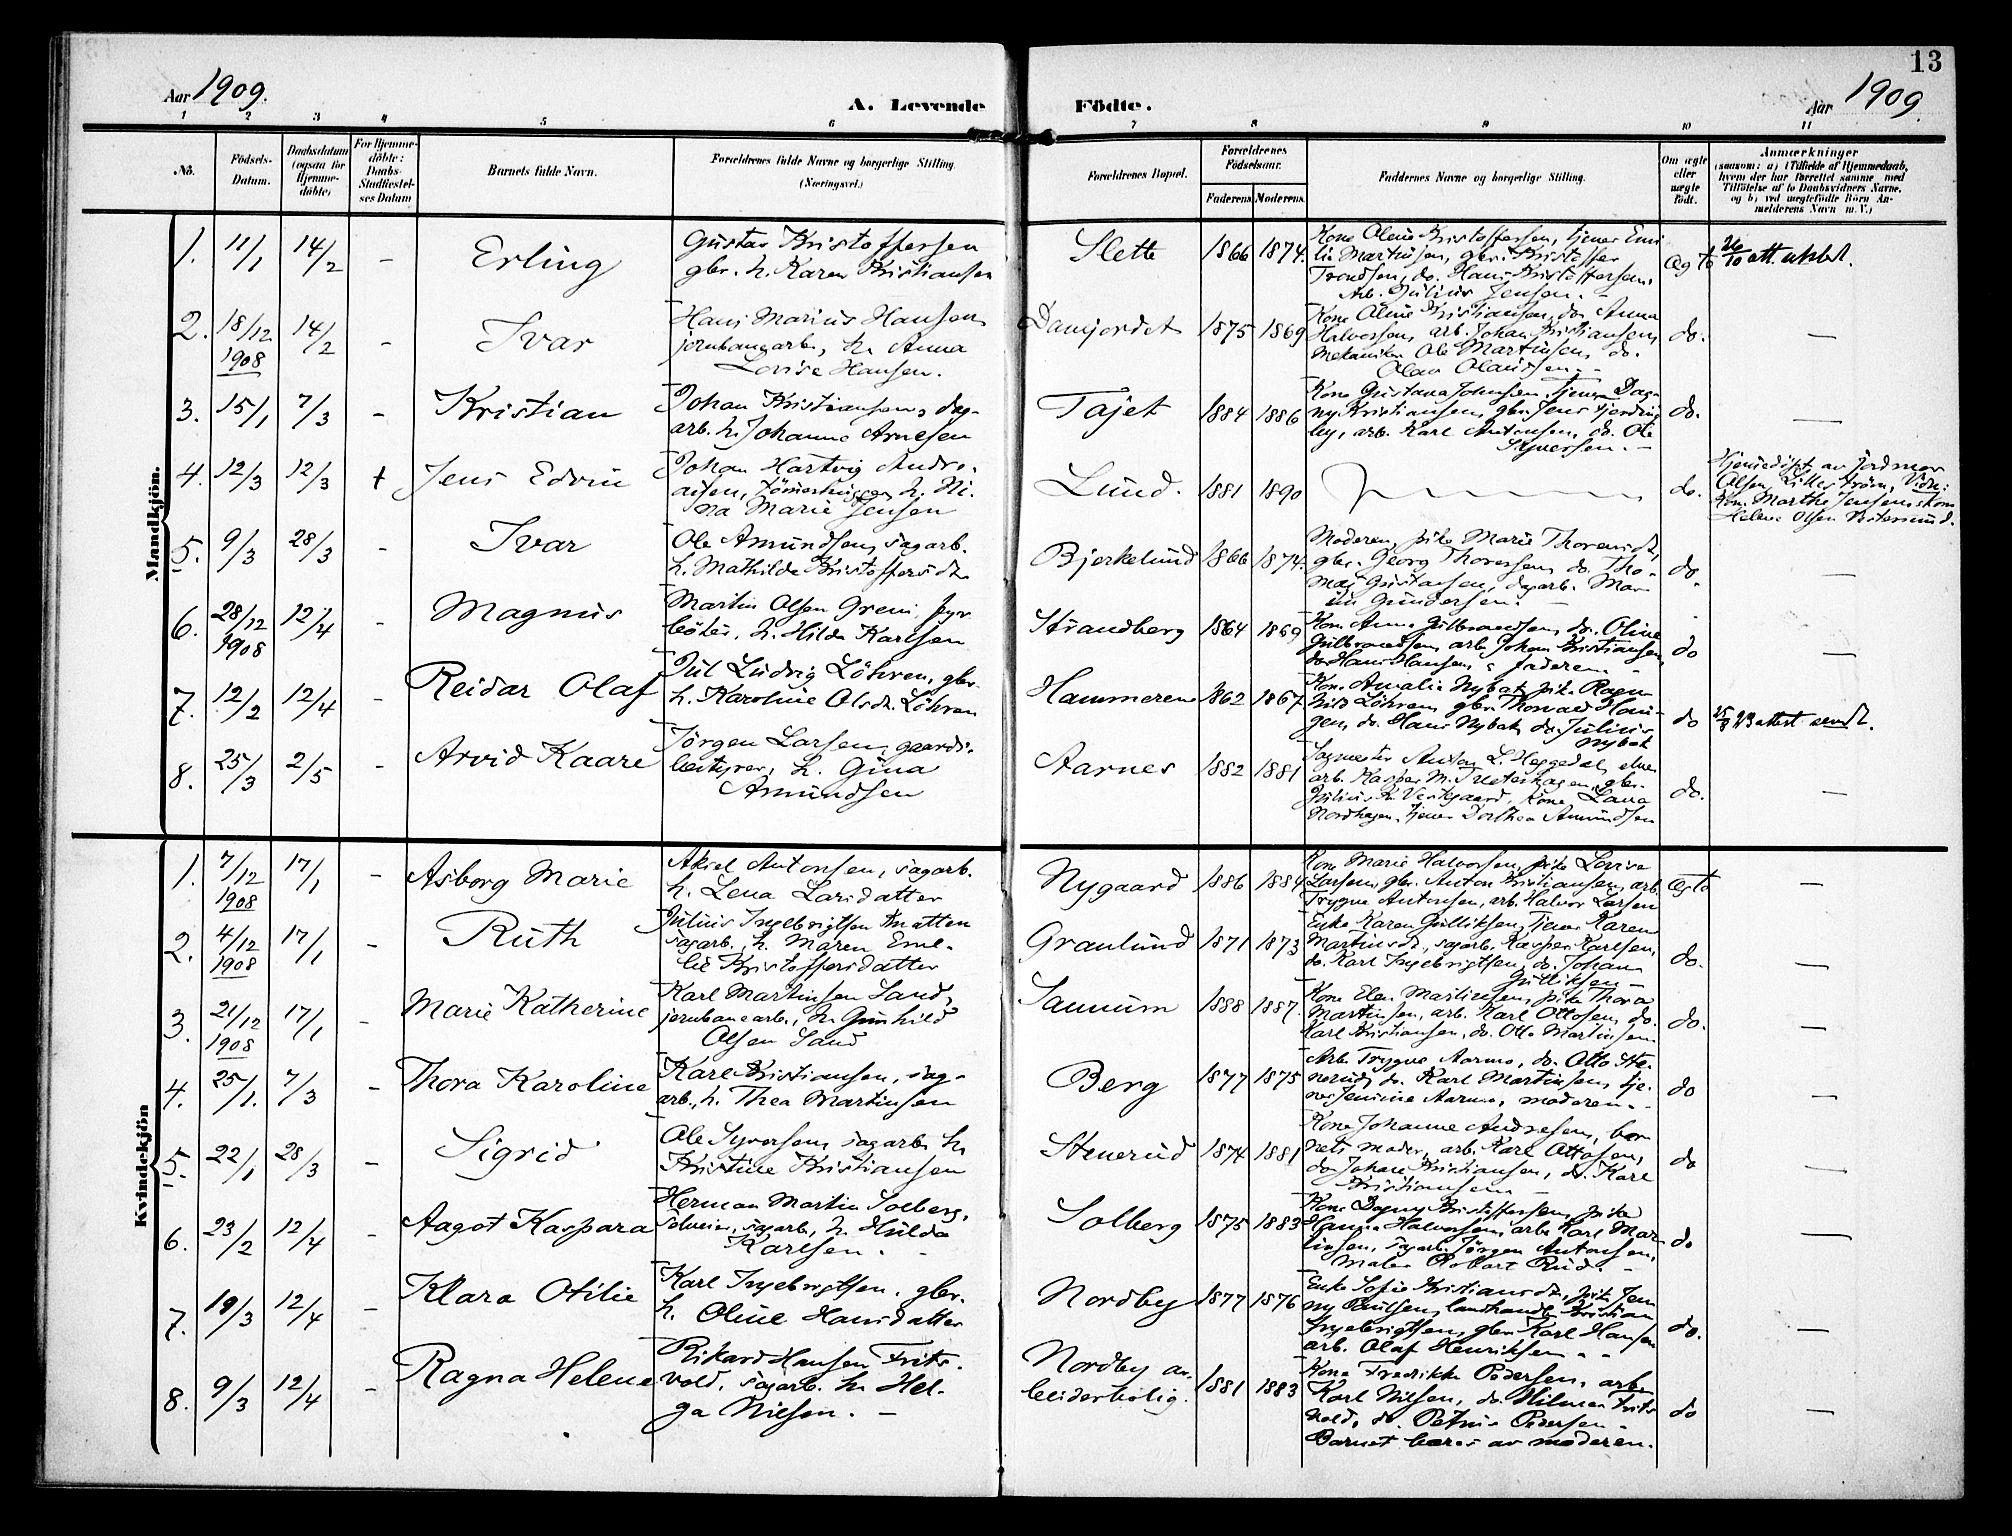 13
Aar 1909.
A. Levende Födte.
Aar 1909.
1 2 3 4 5 6 7 8 9 10 11
No.
Födsels-Datum.
Daabsdatum (ogsaa for Hjemme-döbte)
For Hjemme-döbte: Daabs-Stadfæstel-ses Datum
Barnets fulde Navn.
Forældrenes fulde Navne og borgerlige Stilling. (Næringsvei.)
Forældrenes Bopæl.
Forældrenes Födselsaar.
Faderens Moderens
Faddernes Navne og borgerlige Stilling.
Om ægte eller uægte födt.
Anmærkninger
(saasom: a) i Tilfælde af Hjemmedaab, hvem der har forrettet samme med Tilföielse af to Daabsvidners Navne, og b) ved uægtefödte Börn An-melderens Navn m. V.)
Mandkjön.
1. 11/1 14/2 - Erling
Gustav Kristoffersen
gbr. h. Karen Kristiansen
Slette 1866 1874.
Kone Oline Kristoffersen, tjener Emi
lie Martinsen, gbr. Kristoffer
Trondsen, do. Hans Kristoffersen,
Arb. Julius Jensen. -
ægte
26/10 att. utstedt.
2. 18/12 1908 14/2 - Ivar
Hans Marius Hansen
jernbanearb., h. Anna
Lovise Hansen.
Damjordet 1875 1869
Kone Oline Kristiansen, do. Anna
Halvorsen, arb. Johan Kristiansen,
Mekaniker Ole Martinsen, do.
Olav Olaussen. -
do. —
3. 15/1 7/3 - Kristian
Johan Kristiansen, dag-
arb. h. Johanne Arnesen
Tajet 1884 1886
Kone Gustava Johnsen, tjener Dag-
ny Kristiansen, gbr. Jens Gjerding
by, arb. Karl Antonsen, do. Ole
Syversen. -
do. —
4. 12/3 12/3 + Jens Edvin
Johan Hartvig Andre-
assen, tömerhugger, h. Ni-
na Marie Jensen
Lund. 1881 1890
do.
Hjemedöpt av jordmor
Olsen, Lilleström, Vidn:
Kon. Marthe Jensen, Kone
Helene Olsen Vestersund.
5. 9/3 28/3 - Ivar
Ole Amundsen, sagarb.
h. Mathilde Kristoffersdt.
Bjerkelund 1866 1874.
Moderen, pike Marie Thorensdt,
gbr. Georg Thoresen, do. Tho-
mas Gustavsen, dagarb. Mar-
tin Gundersen. -
do. —
6. 28/12 1908 12/4 - Magnus
Martin Olsen Greni, fyr
böter, h. Hilda Karlsen
Strandberg 1864 1869
Kone Anna Gulbrandsen, do. Oline
Gulbrandsen, arb. Johan Kristiansen,
do. Hans Hansen, & faderen -
do —
7. 12/2 12/4 - Reidar Olaf
Jul Ludvig Löhren, gbr.
h. Karoline Olsdt. Löhren
Hammeren 1862 1867
Kone Amalie Nybak, pike Ragn-
hild Löhren, gbr. Thorvald Hau-
gen, do. Hans Nybak, do. Julius
Nybak
do
25/8 23 attest sendt.
8. 25/3 2/5 - Arvid Kaare
Jörgen Larsen, gaards-
bestyrer, h. Gina
Amundsen
Aarnes 1882 1881
Sagmester Anton L. Heggedal,
arb. Kasper M. gbr.
Julius K. Vestgaard, Kone Laura
Nordhagen, tjener Dorthea Amundsen
do. —
Kvindekjön
1. 7/12 1908 17/1 - Asborg Marie
Aksel Antonsen, sagarb.
h. Lena Larsdatter
Nygaard 1886 1884
Kone Marie Halvorsen, pike Lovise
Larsen, gbr. Anton Kristiansen, arb.
Trygve Antonsen, arb. Halvor Larsen
ægte —
2. 4/12 1908 17/1 - Ruth
Julius Ingebrigtsen Knatten
sagarb., h. Maren Eme-
lie Kristoffersdatter
Granlund 1871 1873
Enke Karen Gulliksen, tjener Karen
Martinsdt., sagarb. Kasper Karlsen,
do. Karl Ingebrigtsen, do. Johan
Gulliksen -
do. —
3. 21/12 1908 17/1 - Marie Katherine
Karl Martinsen Sand,
jernbanearb., h. Gunhild
Olsen Sand
Sannum 1888 1887.
Kone Elen Martinsen, pike Thora
Martinsen, arb. Karl Ottosen, do.
Karl Kristiansen, do. Otto Martinsen
do. —
4. 25/1. 7/3 - Thora Karoline
Karl Kristiansen, sag-
arb., h. Thea Martinsen
Berg 1877 1875
Arb. Trygve Aarmo, do. Otto Ste-
nerud, do. Karl Martinsen, tje-
ner Jenine Aarmo, moderen. -
do —
5. 22/1 28/3 - Sigrid
Ole Syversen, sagarb. h.
Kristine Kristiansen
Stenerud 1874 1881
Kone Johanne Andresen, bar
nets moder, arb. Karl Ottosen,
do. Johan Kristiansen, do. Karl
Kristiansen -
do —
6. 23/2 12/4 - Aagot Kaspara
Herman Martin Solberg,
sagarb., h. Hulda
Karlsen. -
Solberg 1875 1883
Kone Dagny Kristoffersen, pike
Halvorsen, arb. Karl Mar-
tinsen, sagarb. Jörgen Antonsen,
Maler Robart Rud. -
do —
7. 19/3 12/4 - Klara Otilie
Karl Ingebrigtsen, gbr.
h. Oline Hansdatter
Nordby 1877 1876
Enke Sofie Kristiansdt., pike Jen
ny Paulsen, landhandler Kristian
Ingebrigtsen, gbr. Karl Hansen
arb. Olaf Henriksen - -
do. —
8. 9/3 12/4 - Ragna Helene
Rikard Hansen Frits-
vold, sagarb. h. Hel-
ga Nilsen. -
Nordby ar-
beiderbolig. 1881 1883
Kone Fredrikke Pedersen, arb.
Karl Nilsen, do. Hilmar Frits
vold, do. Petrus Pedersen -
Barnet bæres av moderen.
do —